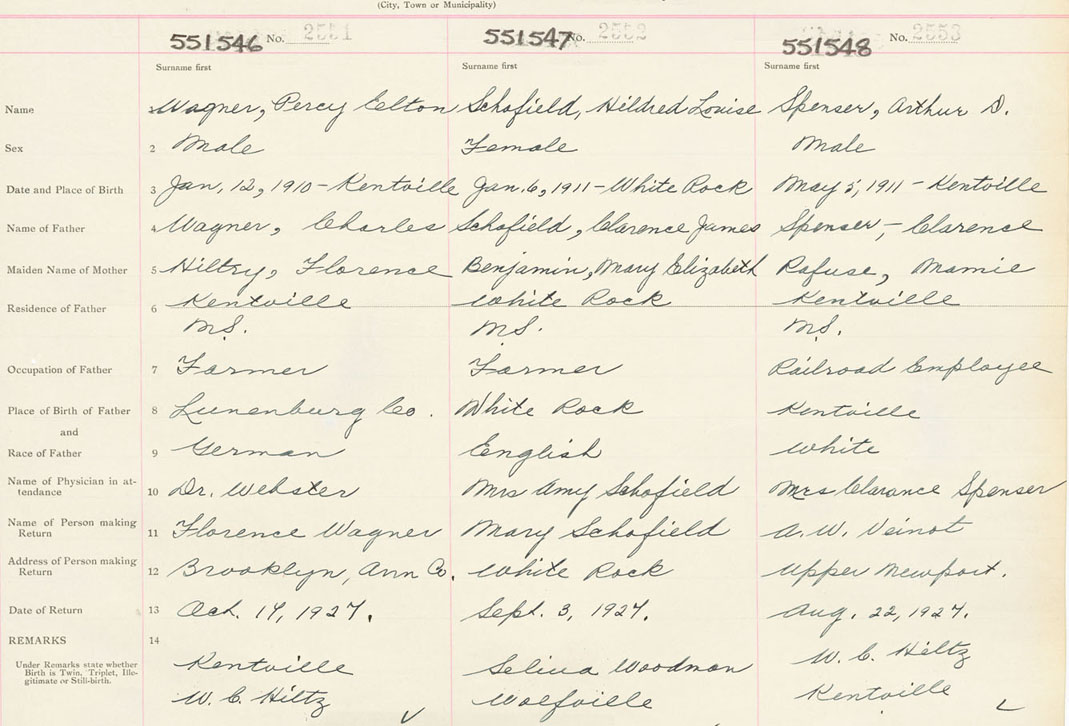 (City, Town or Municipality)
551546 No. 2551 551547 No. 2552 551548 No. 2553
Surname first Surname first Surname first
Name Wagner, Percy Elton Schofield, Hildred Louise Spenser, Arthur D.
Sex 2 Male Female Male
Date and Place of Birth 3 Jan. 12, 1910 - Kentville Jan. 6, 1911 - White Rock May 5, 1911 - Kentville
Name of Father 4 Wagner, Charles Schofield, Clarence James Spenser, - Clarence
Maiden Name of Mother 5 Hiltzy, Florence Benjamin, Mary Elizabeth Rafuse, Mamie
Residence of Father 6 Kentville White Rock Kentville
M.S. M.S. M.S.
Occupation of Father 7 Farmer Farmer Railroad Employee
Place of Birth of Father 8 Lunenburg Co. White Rock Kentville
and
Race of Father 9 German English White
Name of Physician in at-
tendance 10 Dr. Webster Mrs Amy Schofield Mrs Clarance Spenser
Name of Person making
Return 11 Florence Wagner Mary Schofield A. W. Veinot
Address of Person making
Return 12 Brooklyn, Ann Co. White Rock Upper Newport.
Date of Return 13 Oct. 14, 1927. Sept. 3, 1927. Aug. 22, 1927.
REMARKS 14
Under Remarks state whether
Birth is Twin, Triplet, Ille-
gitimate or Still-birth.
Kentville Woodman W. C. Hiltz
W. C. Hiltz Wolfville Kentville